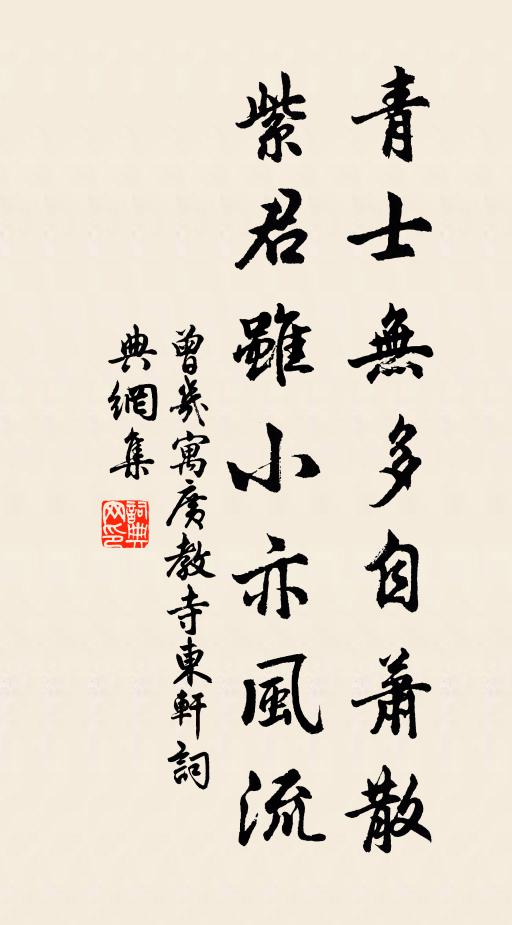 青士無多自蕭散
紫君雖小亦風流
曾幾寓廣教寺東軒詞
典網集
詞典网印